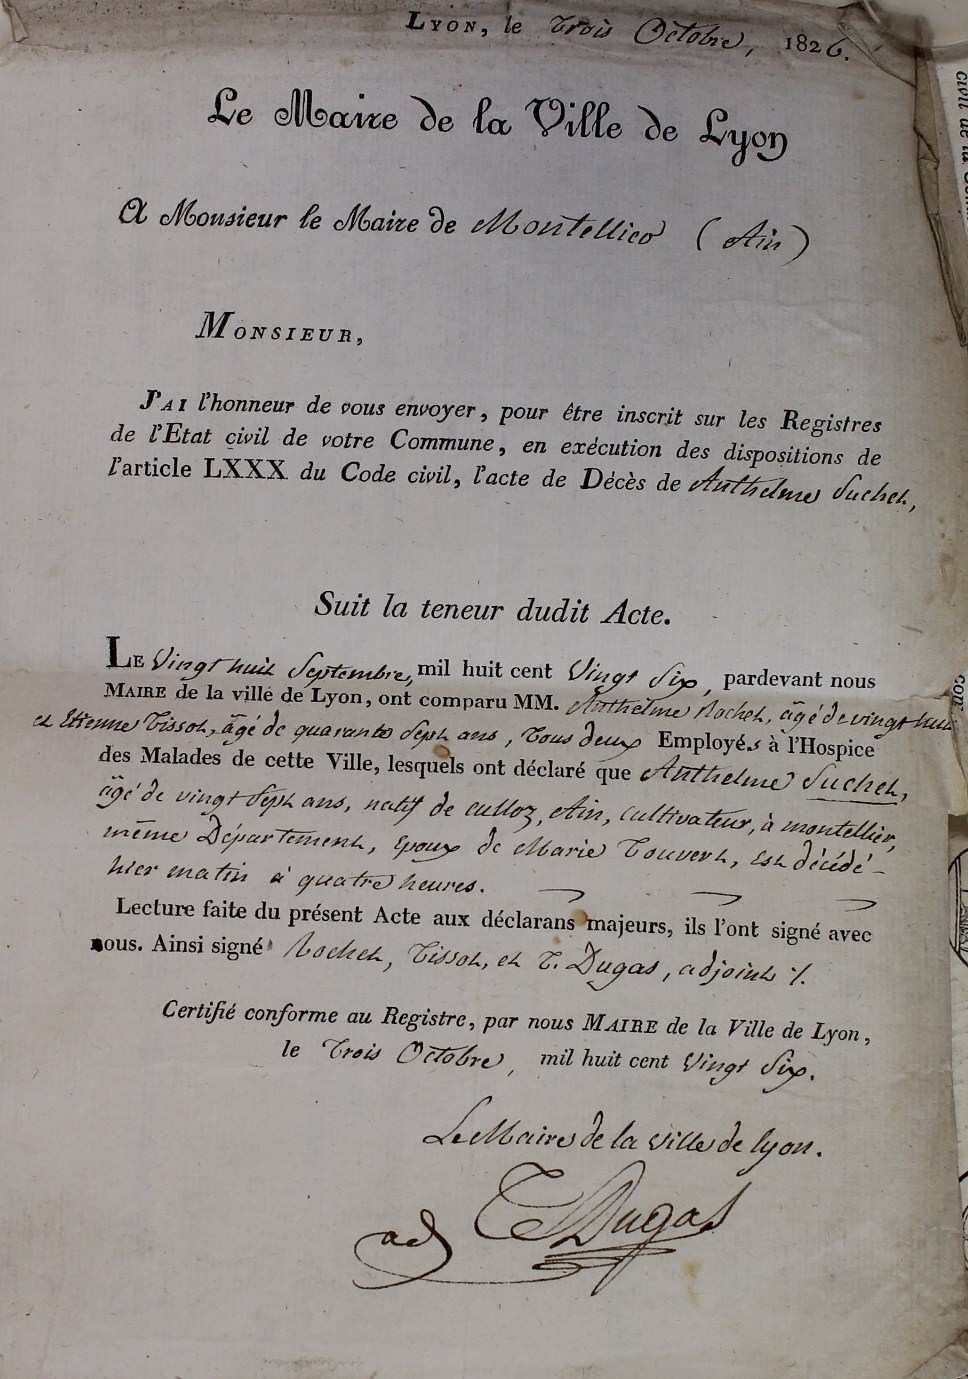 LYON, le Trois Octobre, 1826.
Le Maire de la Ville de Lyon
A Monsieur le Maire de Montellier (Ain)
MONSIEUR,
J'AI l'honneur de vous envoyer, pour être inscrit sur les Registres
de l'Etat civil de votre Commune, en exécution des dispositions de
l'article LXXX du Code civil, l'acte de Décès de Anthelme Suchet,
Suit la teneur dudit Acte.
LE Vingt huit Septembre, mil huit cent Vingt Six, pardevant nous
MAIRE de la ville de Lyon, ont comparu MM. Anthelme Rochet, âgé de vingt huit
et Etienne Tissot, âgé de quarante Sept ans, Tous deux Employés à l'Hospice
des Malades de cette Ville, lesquels ont déclaré que Anthelme Suchet,
âgé de vingt Sept ans, natif de culloz, Ain, cultivateur, à montellier,
même Département, Epoux de Marie Touvert, Est décédé
hier matin à quatre heures.
Lecture faite du présent Acte aux déclarans majeurs, ils l'ont signé avec
nous. Ainsi signé Rochet, Tissot, et T. Dugas, adjoint ./.
Certifié conforme au Registre, par nous MAIRE de la Ville de Lyon,
le Trois Octobre, mil huit cent Vingt Six.
Le Maire de la ville de lyon.
T Dugas
adj
civil de la